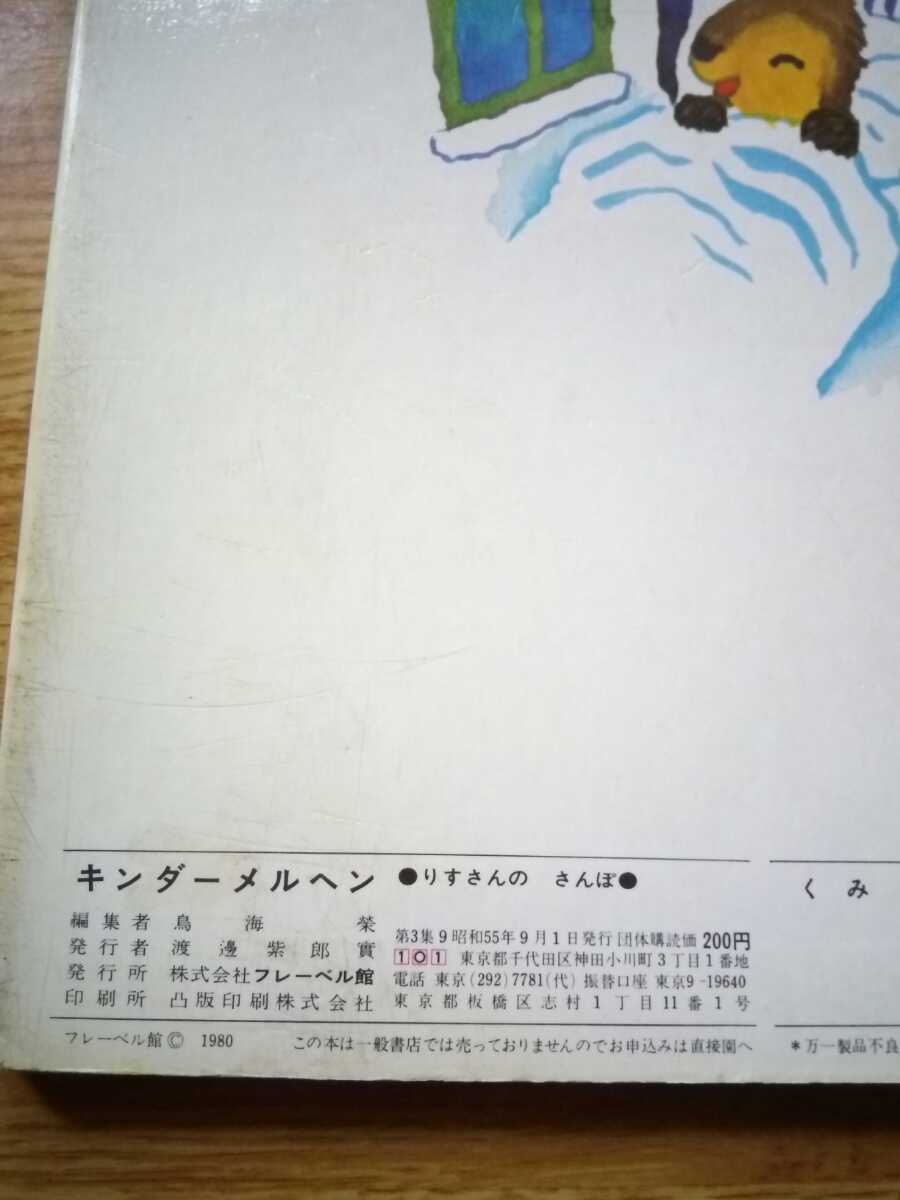 キンダーメルヘン ●りすさんの さんぽ●
編集者 鳥海 榮
発行者 渡邊紫郎實
発行所 株式会社フレーベル館
印刷所 凸版印刷株式会社
第3集9 昭和55年9月1日発行 団体購読価 200円
101 東京都千代田区神田小川町3丁目1番地
電話 東京(292)7781(代) 振替口座 東京9-19640
東京都板橋区志村1丁目11番1号
フレーベル館© 1980 この本は一般書店では売っておりませんのでお申込みは直接園へ
くみ
*万一製品不良